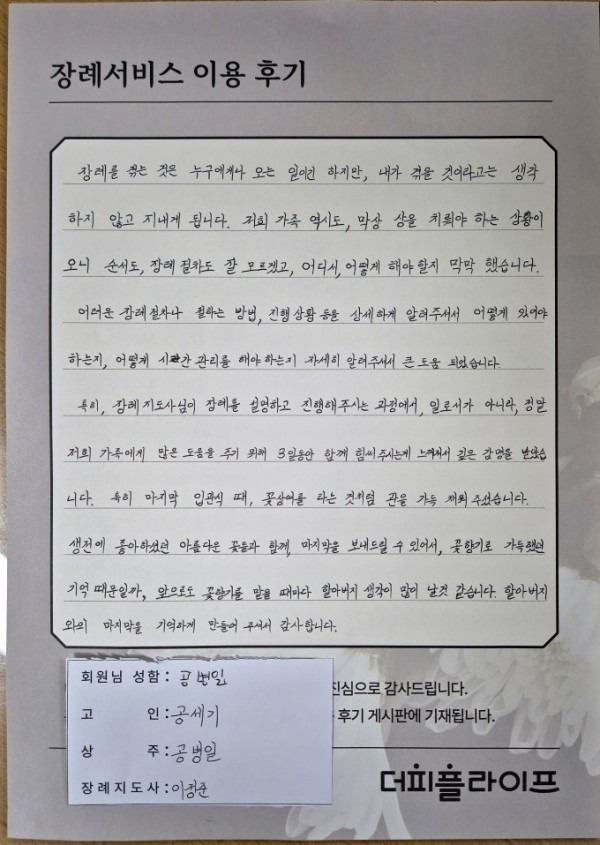 장례서비스 이용 후기
장례를 겪는 것은 누구에게나 오는 일이긴 하지만, 내가 겪을 것이라고는 생각
하지 않고 지내게 됩니다. 저희 가족 역시도, 막상 상을 치뤄야 하는 상황이
오니 순서도, 장례 절차도 잘 모르겠고, 어디서, 어떻게 해야 할지 막막 했습니다.
어려운 장례절차나 절하는 방법, 진행상황 등을 상세하게 알려주셔서 어떻게 있어야
하는지, 어떻게 시간 관리를 해야 하는지 자세히 알려주셔서 큰 도움 되었습니다.
특히, 장례지도사님이 장례를 설명하고 진행해주시는 과정에서, 일로서가 아니라, 정말
저희 가족에게 많은 도움을 주기 위해 3일동안 함께 힘써 주시는게 느껴져서 깊은 감명을 받았습
니다. 특히 마지막 입관식 때, 꽃상여를 타는 것처럼 관을 가득 채워 주셨습니다.
생전에 좋아하셨던 아름다운 꽃들과 함께, 마지막을 보내드릴 수 있어서, 꽃향기로 가득했던
기억 때문일까, 앞으로도 꽃향기를 맡을 때마다 할아버지 생각이 많이 날것 같습니다. 할아버지
와의 마지막을 기억하게 만들어 주셔서 감사합니다.
진심으로 감사드립니다.
후기 게시판에 기재됩니다.
회원님 성함 : 공병일
고 인 : 공세기
상 주 : 공병일
장례지도사 : 이정준
더피플라이프